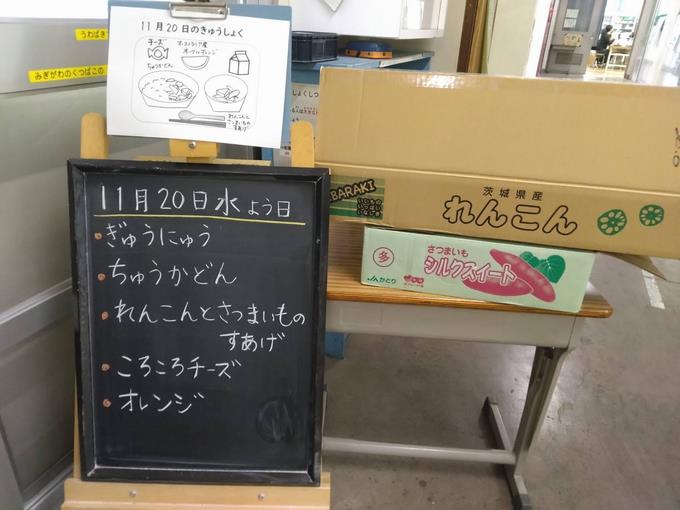 11月20日のきゅうしょく
チーズ
オーストラリア産
オーガニックオレンジ
ちゅうかどん
れんこんと
さつまいもの
すあげ
うわばき
みぎがわのくつばこの
11月20日水よう日
ぎゅうにゅう
ちゅうかどん
れんこんとさつまいもの
すあげ
ころころチーズ
オレンジ
BARAKI
茨城県産
れんこん
さつまいも
多
シルクスイート
JAかとり